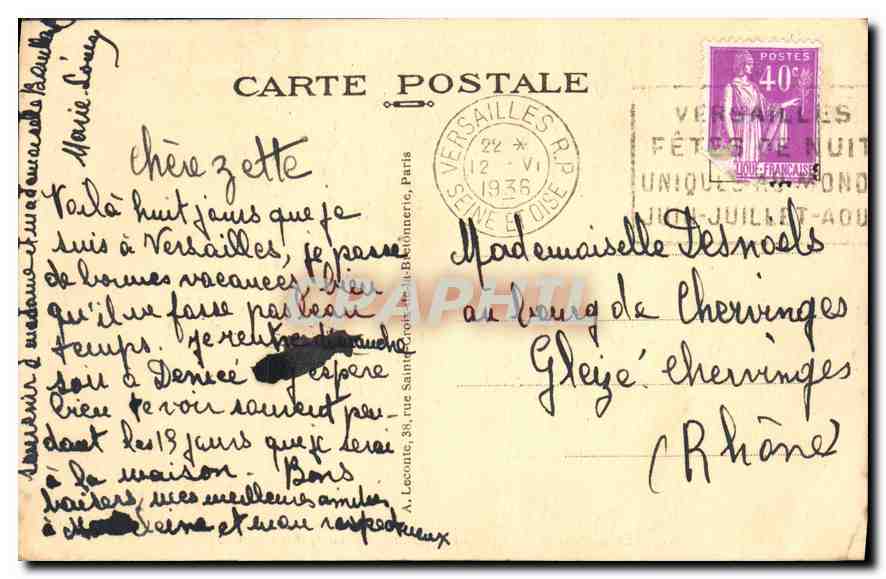 CARTE POSTALE
POSTES
40c
VERSAILLES R.P.
22 *
12 - VI
1936
SEINE ET OISE
VERSAILLES
FÊTES DE NUIT
UNIQUES AU MONDE
JUIN-JUILLET-AOU
chère zette
Voilà huit jours que je
suis à Versailles, je passe
de bonnes vacances, bien
qu'il ne fasse pas beau
temps. je rentre dimanche
soir à Denicé j'espère
bien te voir souvent pen-
dant les 15 jours que je serai
à la maison. Bons
baisers, mes meilleures amitiés
à et mon respectueux
souvenir à madame et mademoiselle
Marie Louise
A. Leconte, 38, rue Sainte-Croix-de-la-Bretonnerie, Paris
Mademoiselle Desnoels
au bourg de Chervinges
Gleizé. Chervinges
(Rhône)
CPAPHIL